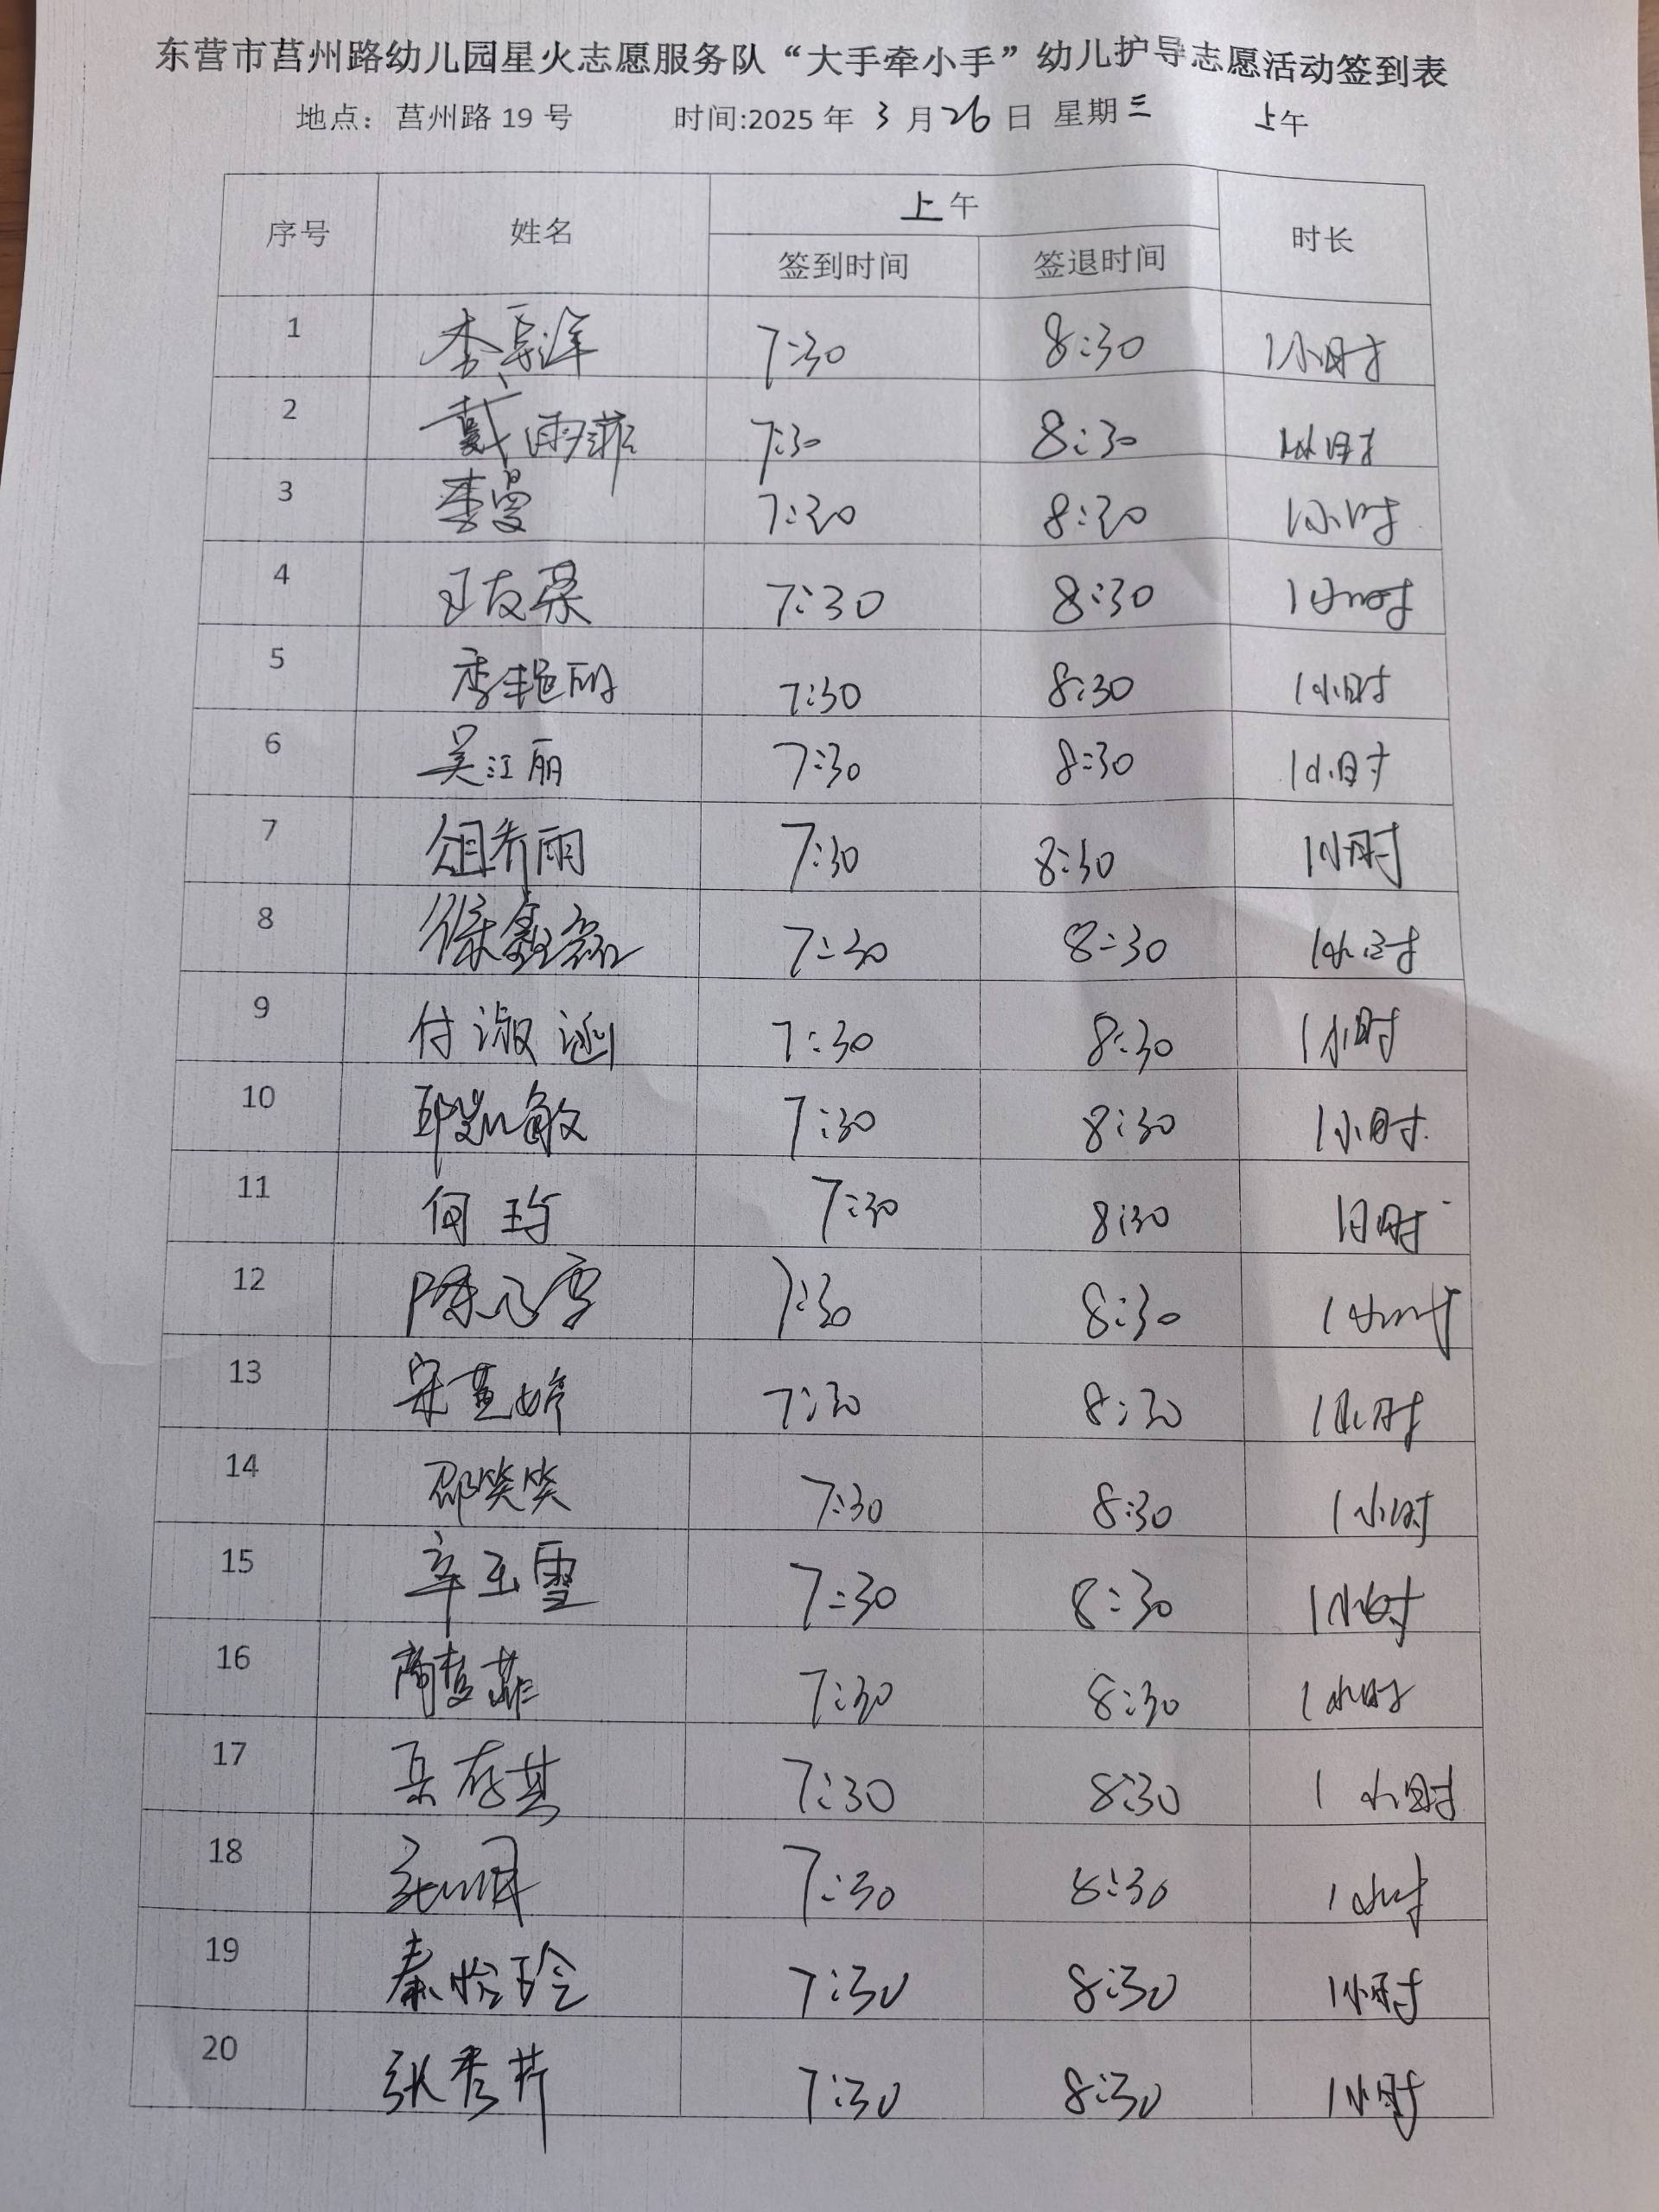 东营市莒州路幼儿园星火志愿服务队“大手牵小手”幼儿护导志愿活动签到表
地点：莒州路 19 号 时间:2025 年 3 月 26 日 星期三 上午
序号 姓名 上午 时长
签到时间 签退时间
1 李 7:30 8:30 1小时
2 戴雨菲 7:30 8:30 1小时
3 李曼 7:30 8:30 1小时
4 王友荣 7:30 8:30 1小时
5 李艳丽 7:30 8:30 1小时
6 吴江丽 7:30 8:30 1小时
7 俎乔雨 7:30 8:30 1小时
8 徐鑫磊 7:30 8:30 1小时
9 付淑涵 7:30 8:30 1小时
10 邱凯敏 7:30 8:30 1小时
11 何玙 7:30 8:30 1小时
12 陈飞雪 7:30 8:30 1小时
13 宋萱婷 7:30 8:30 1小时
14 邵笑笑 7:30 8:30 1小时
15 辛玉雪 7:30 8:30 1小时
16 商菲 7:30 8:30 1小时
17 岳存其 7:30 8:30 1小时
18 7:30 8:30 1小时
19 秦怡玲 7:30 8:30 1小时
20 张秀芹 7:30 8:30 1小时